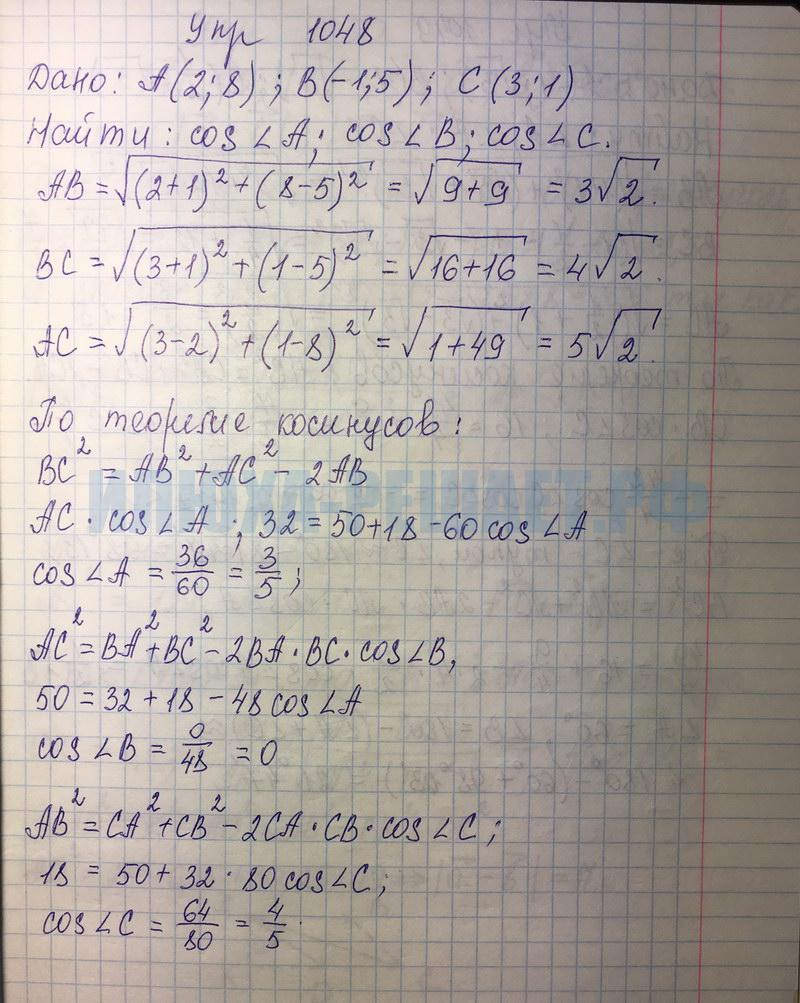 Упр 1048
Дано: A(2; 8) ; B(-1; 5) ; C(3; 1)
Найти: cos ∠A; cos ∠B; cos ∠C.
AB = √(2+1)² + (8-5)² = √9+9 = 3√2.
BC = √(3+1)² + (1-5)² = √16+16 = 4√2.
AC = √(3-2)² + (1-8)² = √1+49 = 5√2.
По теореме косинусов:
BC² = AB² + AC² - 2AB
ИЛЮХА-РЕШАЕТ.РФ
AC · cos∠A ; 32 = 50+18 - 60 cos∠A
cos∠A = 36/60 = 3/5 ;
AC² = BA² + BC² - 2BA · BC · cos∠B,
50 = 32 + 18 - 48 cos∠A
cos∠B = 0/48 = 0
AB² = CA² + CB² - 2CA · CB · cos∠C ;
18 = 50 + 32 · 80 cos∠C ;
cos∠C = 64/80 = 4/5 .